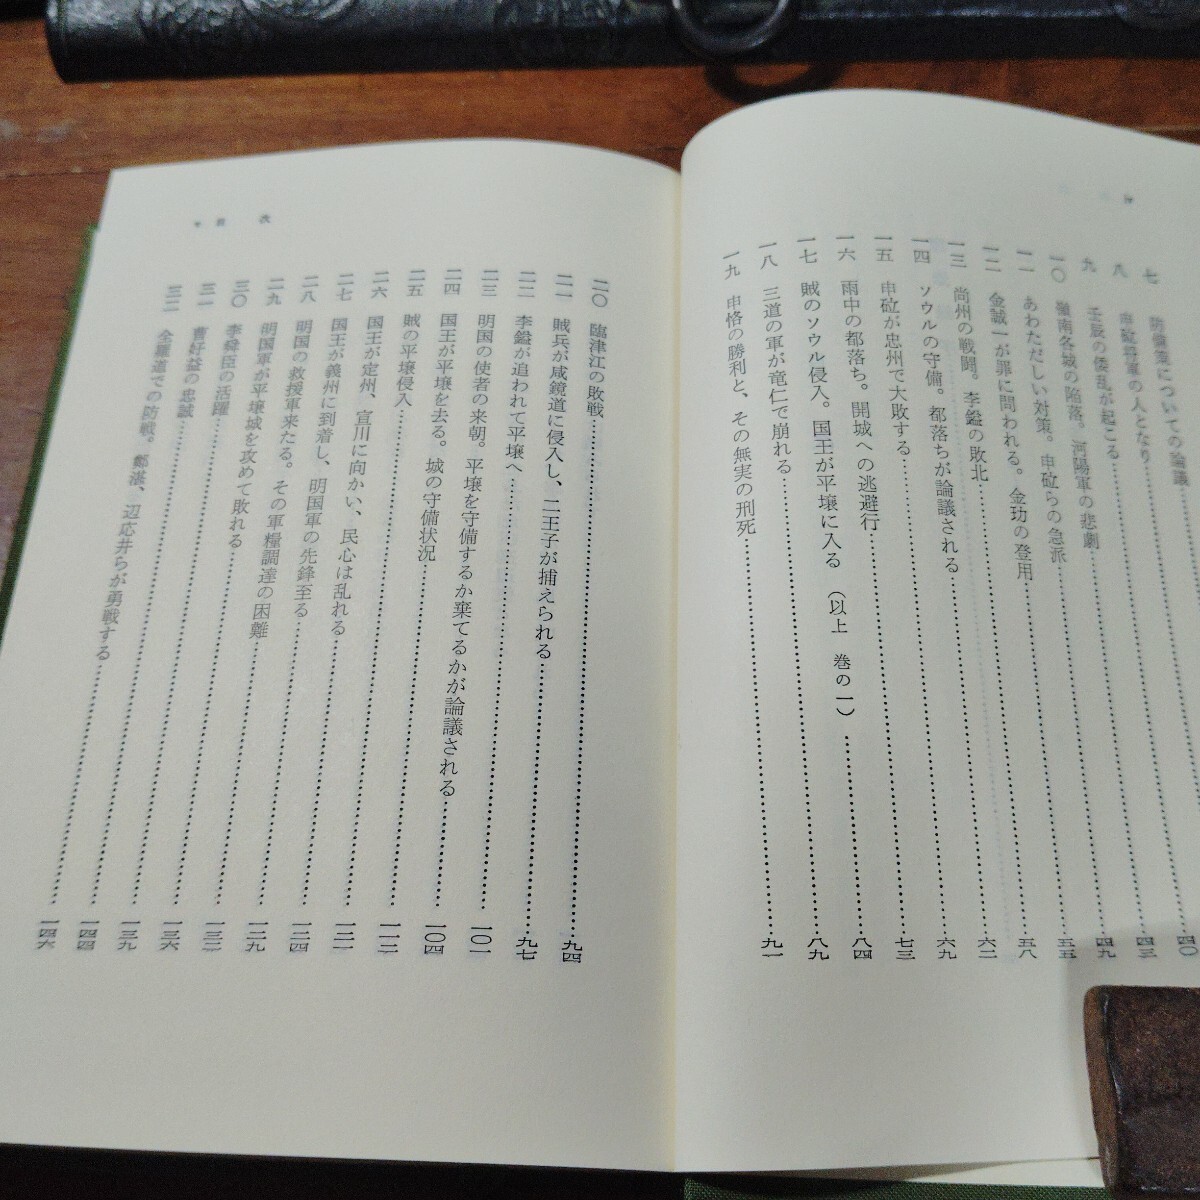 七 防備策についての論議……四〇
八 申砬将軍の人となり……四三
九 壬辰の倭乱が起こる……四九
一〇 嶺南各城の陥落。河陽軍の悲劇……五五
一一 あわただしい対策。申砬らの急派……五八
一二 金誠一が罪に問われる。金玏の登用……六二
一三 尚州の戦闘。李鎰の敗北……六九
一四 ソウルの守備。都落ちが論議される……七三
一五 申砬が忠州で大敗する
一六 雨中の都落ち。開城への逃避行……八四
一七 賊のソウル侵入。国王が平壌に入る (以上 巻の一)……八九
一八 三道の軍が竜仁で崩れる
一九 申恪の勝利と、その無実の刑死……九一
目次
二〇 臨津江の敗戦……九四
二一 賊兵が咸鏡道に侵入し、二王子が捕えられる……九七
二二 李鎰が追われて平壌へ……一〇一
二三 明国の使者の来朝。平壌を守備するか棄てるかが論議される……一〇四
二四 国王が平壌を去る。城の守備状況……一一二
二五 賊の平壌侵入
二六 国王が定州、宣川に向かい、民心は乱れる
二七 国王が義州に到着し、明国軍の先鋒至る
二八 明国の救援軍来たる。その軍糧調達の困難
二九 明国軍が平壌城を攻めて敗れる
三〇 李舜臣の活躍……一三六
三一 曹好益の忠誠……一三九
三二 全羅道での防戦。鄭湛、辺応井らが勇戦する……一四四
一四六